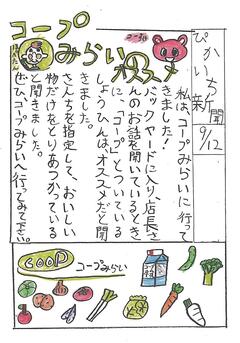 ぴかいち新聞
9/12
コープ
みらい
オススメ
コープ
私は、コープみらいに行って
きました！
バックヤードに入り、店長さ
んのお話を聞いているとき
に、「コープ」とついている
しょうひんは、オススメだと聞
きました。
さんちを指定して、おいしい
物だけをとりあつかっている
と聞きました。
ぜひコープみらいへ行ってみて下さい。
COOP
コープみらい